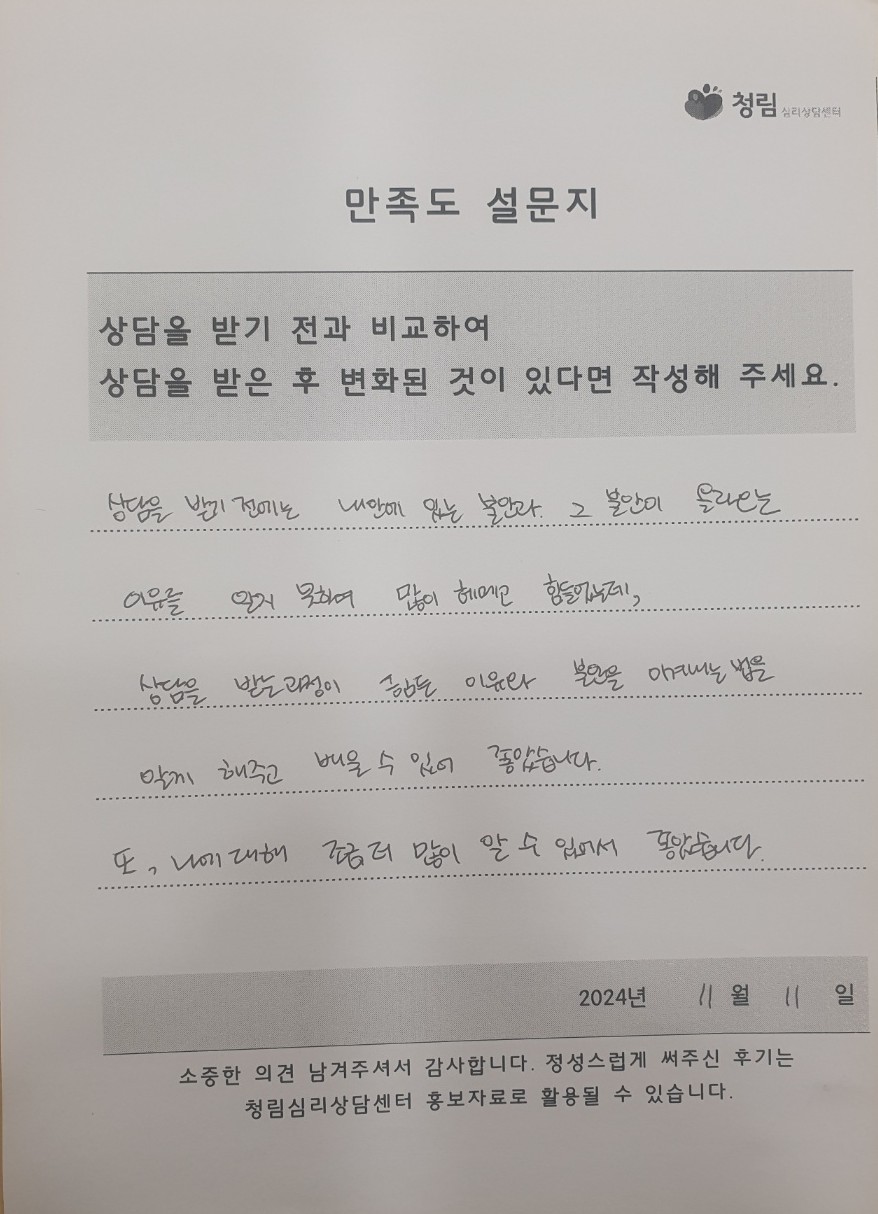 청림 심리상담센터
만족도 설문지
상담을 받기 전과 비교하여
상담을 받은 후 변화된 것이 있다면 작성해 주세요.
상담을 받기 전에는 내안에 있는 불안과. 그 불안이 올라오는
이유를 알지 못하여 많이 헤메고 힘들었는데,
상담을 받는과정이 힘든 이유와 불안을 이겨내는 법을
알게 해주고 배울 수 있어 좋았습니다.
또, 나에 대해 조금 더 많이 알 수 있어서 좋았습니다.
2024년 11월 11일
소중한 의견 남겨주셔서 감사합니다. 정성스럽게 써주신 후기는
청림심리상담센터 홍보자료로 활용될 수 있습니다.